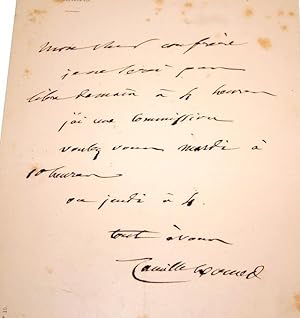 Mon cher confrère
je ne serai pas
libre demain à 4 heures
j'ai une Commission
voulez vous mardi à
10 heures
ou jeudi à 4
tout à vous
Camille Doucet